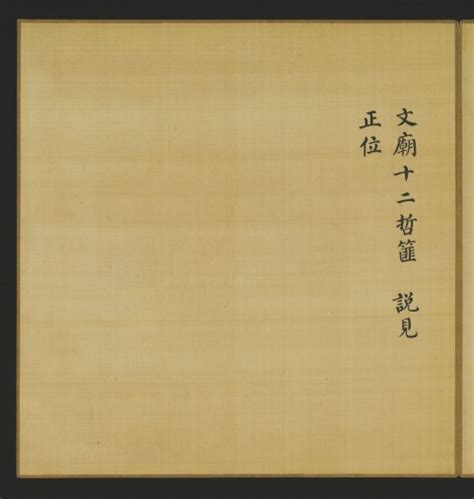 文廟十二哲篚　說見
正位